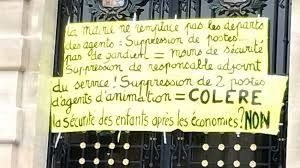 La mairie ne remplace pas les départs
des agents : Suppression de postes...!
pas de gardien = moins de sécurité
Suppression de responsable adjoint
du service ! Suppression de 2 postes
d'agents d'animation = COLÈRE
la sécurité des enfants après les économies ! NON